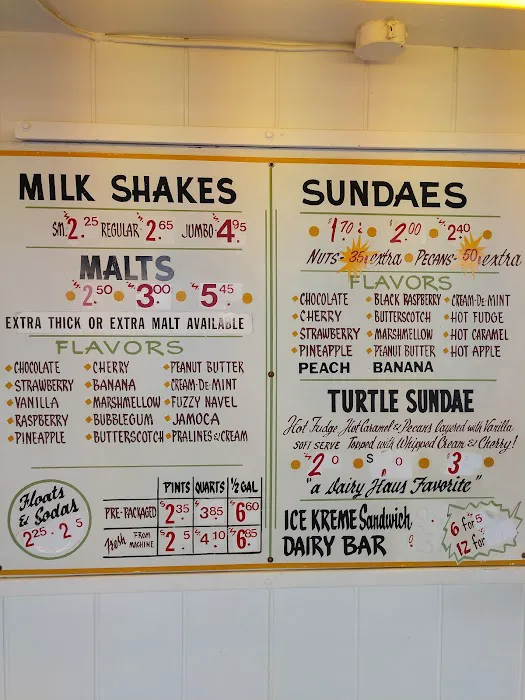 MILK SHAKES
SM. 2.25 REGULAR 2.65 JUMBO 4.95
MALTS
2.50 3.00 5.45
EXTRA THICK OR EXTRA MALT AVAILABLE
FLAVORS
CHOCOLATE CHERRY PEANUT BUTTER
STRAWBERRY BANANA CREAM-DE-MINT
VANILLA MARSHMALLOW FUZZY NAVEL
RASPBERRY BUBBLEGUM JAMOCA
PINEAPPLE BUTTERSCOTCH PRALINES & CREAM
Floats
& Sodas
2.25
PINTS QUARTS ½ GAL
PRE-PACKAGED 2.35 3.85 6.60
Fresh FROM MACHINE 4.10 6.85
SUNDAES
1.70 2.00 2.40
NUTS- 35¢ extra PECANS- 50¢ extra
FLAVORS
CHOCOLATE BLACK RASPBERRY CREAM-DE-MINT
CHERRY BUTTERSCOTCH HOT FUDGE
STRAWBERRY MARSHMALLOW HOT CARAMEL
PINEAPPLE PEANUT BUTTER HOT APPLE
PEACH BANANA
TURTLE SUNDAE
Hot Fudge, Hot Caramel & Pecans Layered with Vanilla
SOFT SERVE Topped with Whipped Cream & Cherry!
"a Dairy Haus Favorite"
ICE KREME Sandwich
DAIRY BAR
6 for
12 for